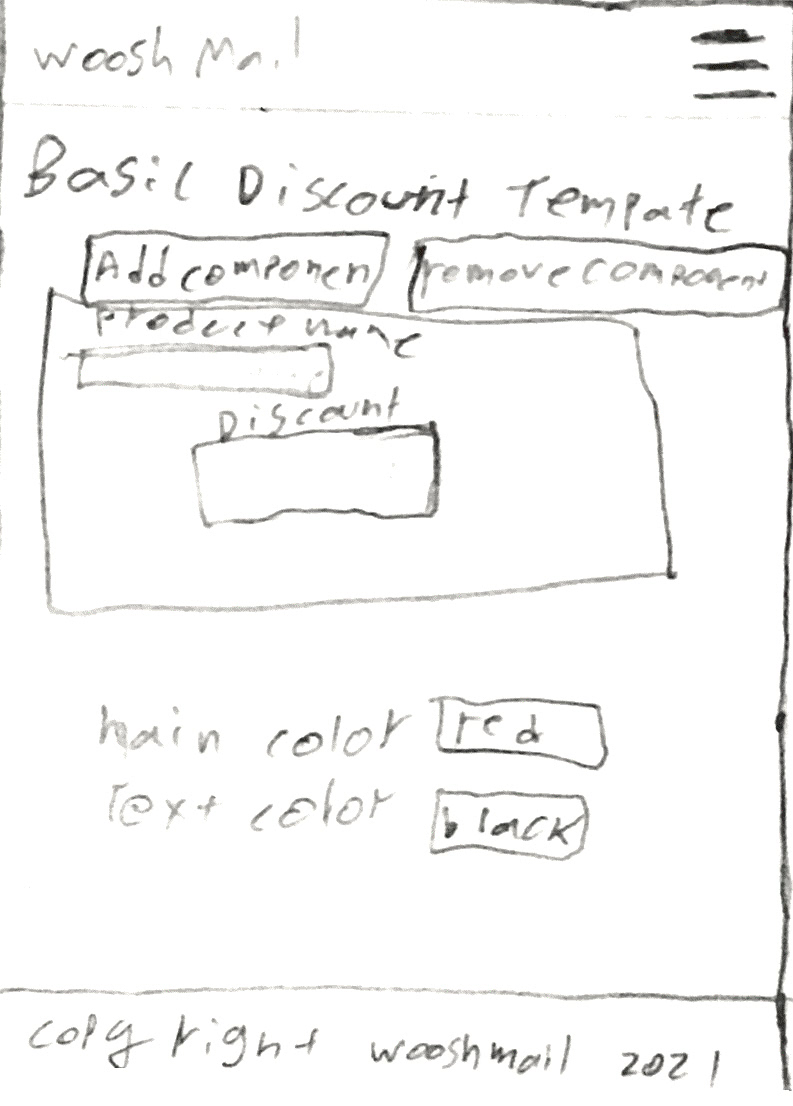 woosh Mail
Basil Discount Tempate
Add componen
remove component
product name
Discount
main color red
Text color black
copyright wooshmail 2021